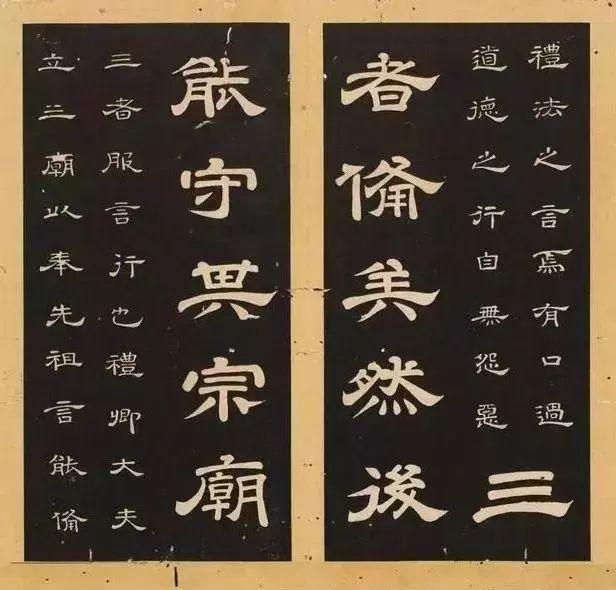 禮法之言焉有口過
道德之行自無怨惡
三
者備矣然後
能守其宗廟
三者服言行也禮卿大夫
立三廟以奉先祖言能備